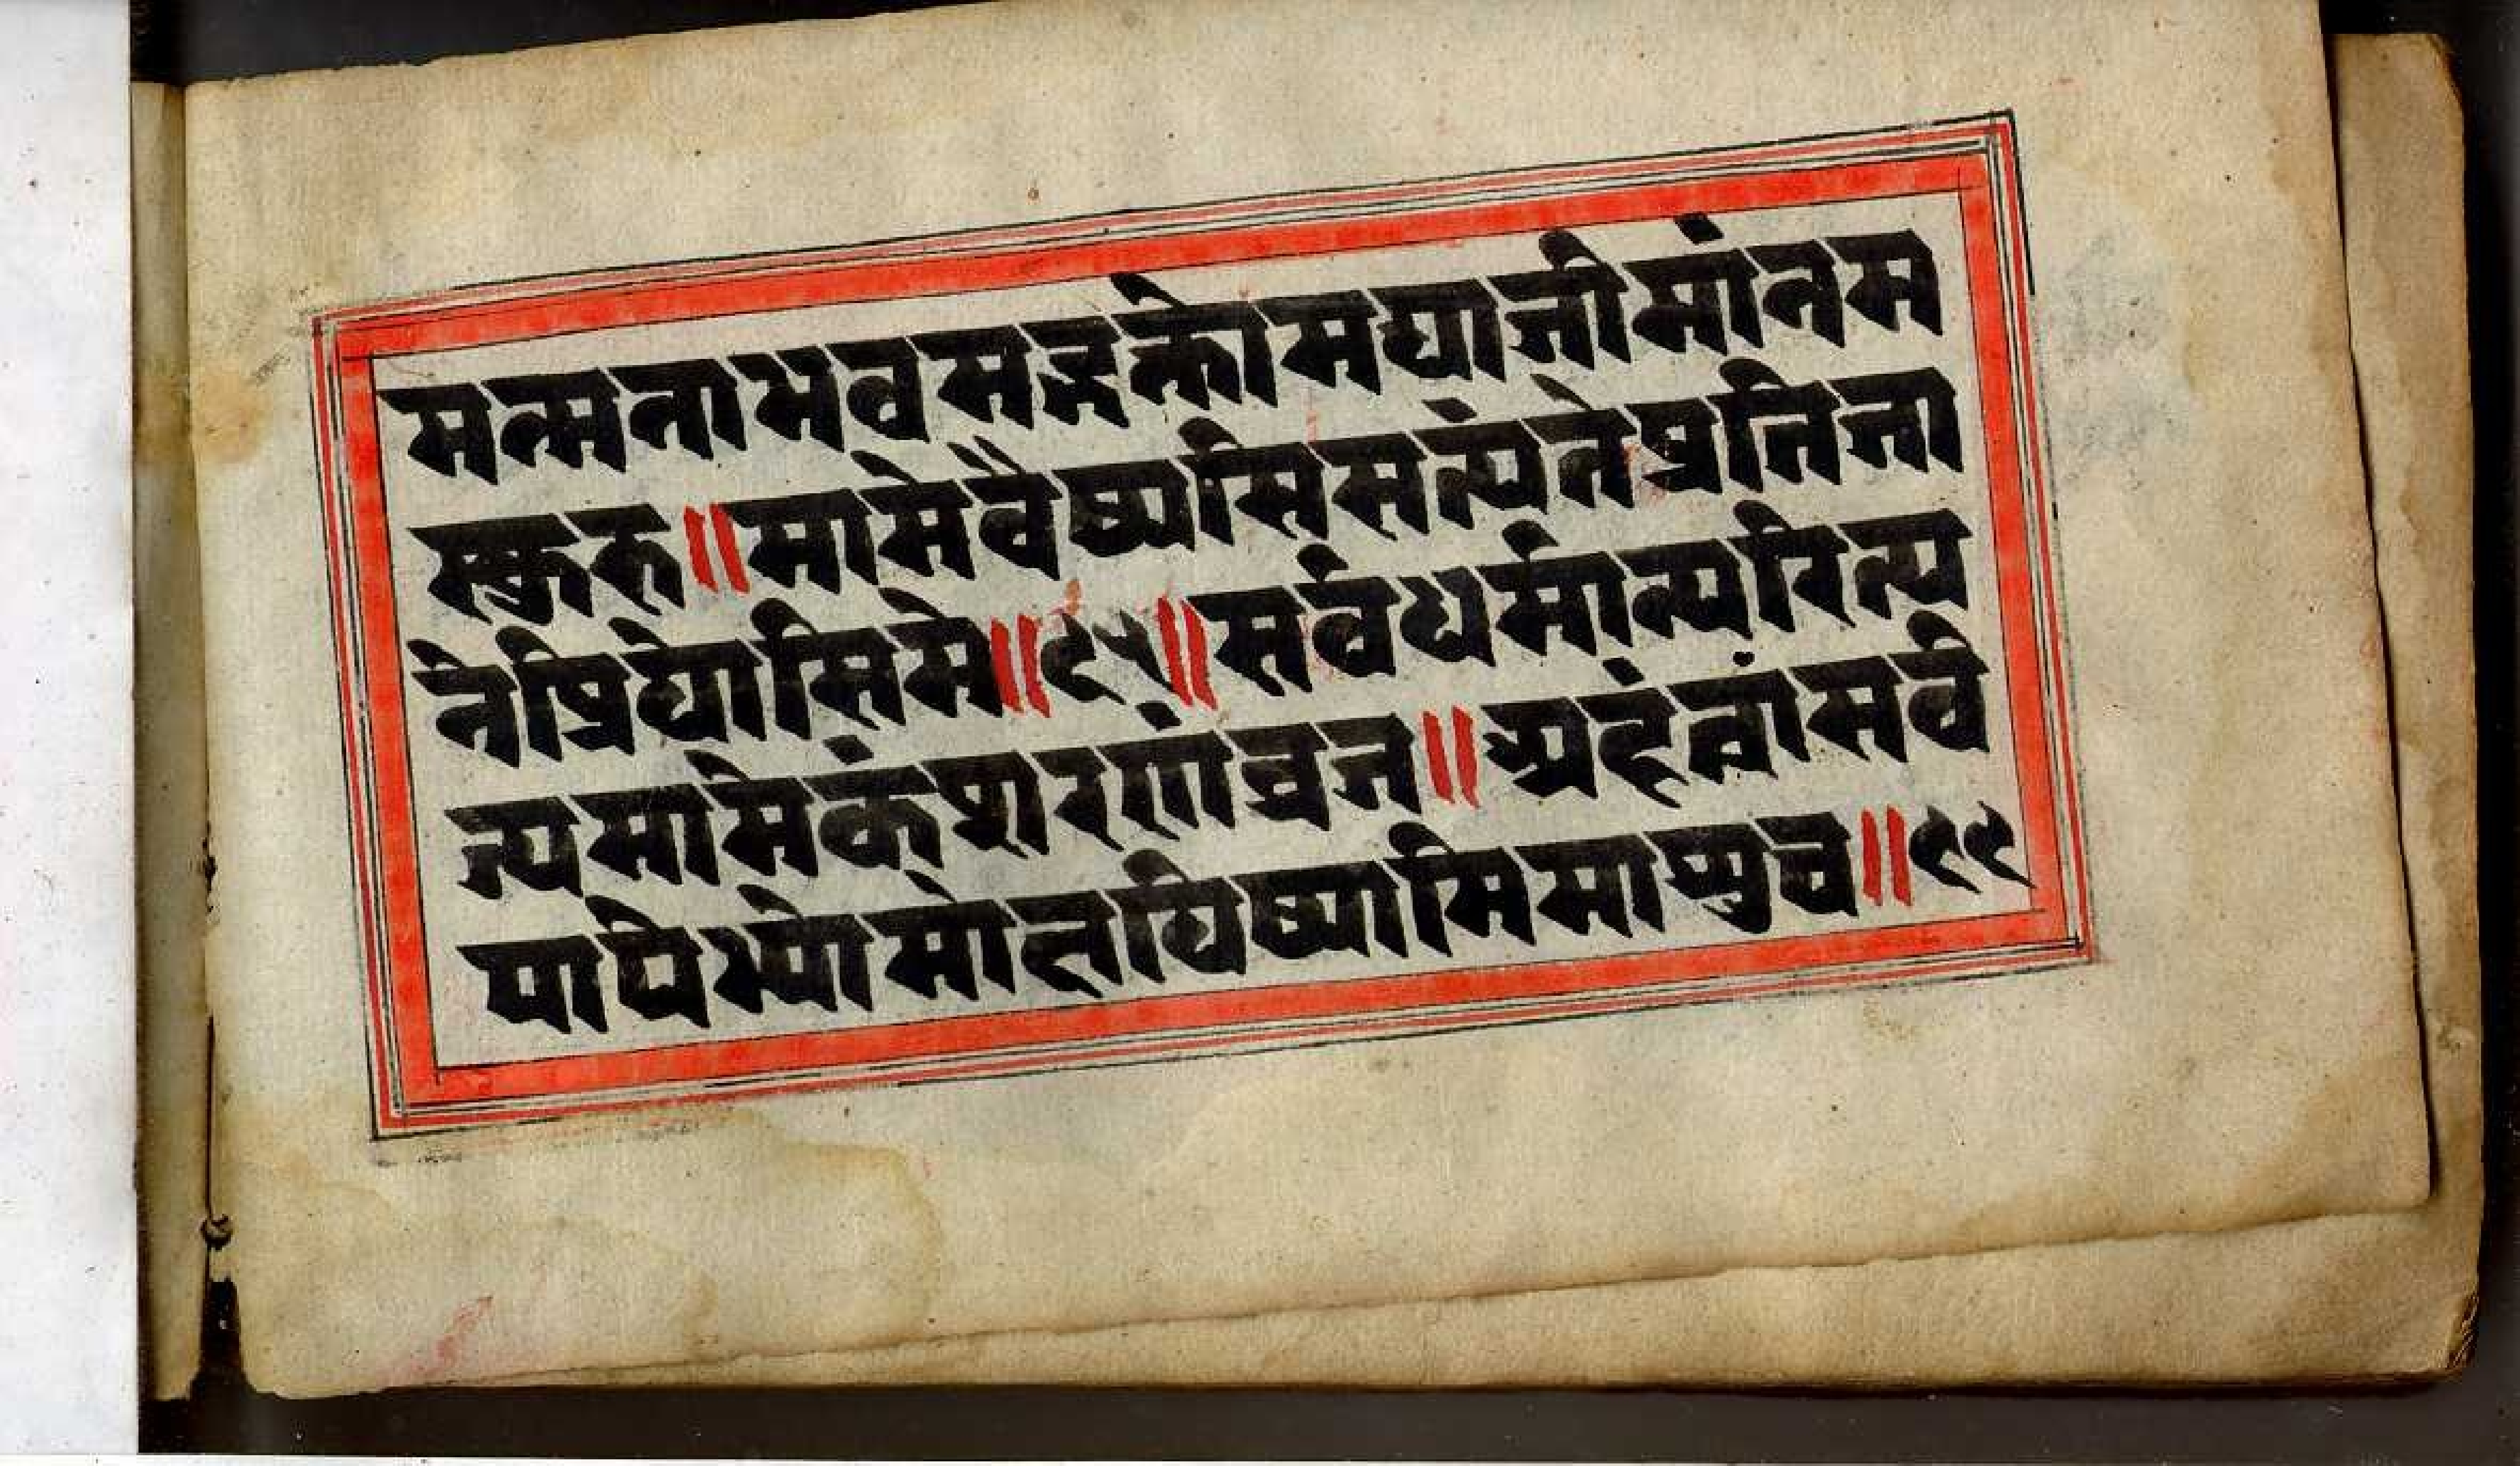 मन्मनाभवमद्भक्तोमद्याजीमांनम
स्कुरु॥मामेवैष्यसिसत्यंतेप्रतिजा
नेप्रियोसिमे॥६५॥सर्वधर्मान्परित्य
ज्यमामेकंशरणंव्रज॥अहंत्वांसर्व
पापेभ्योमोक्षयिष्यामिमाशुच॥६६